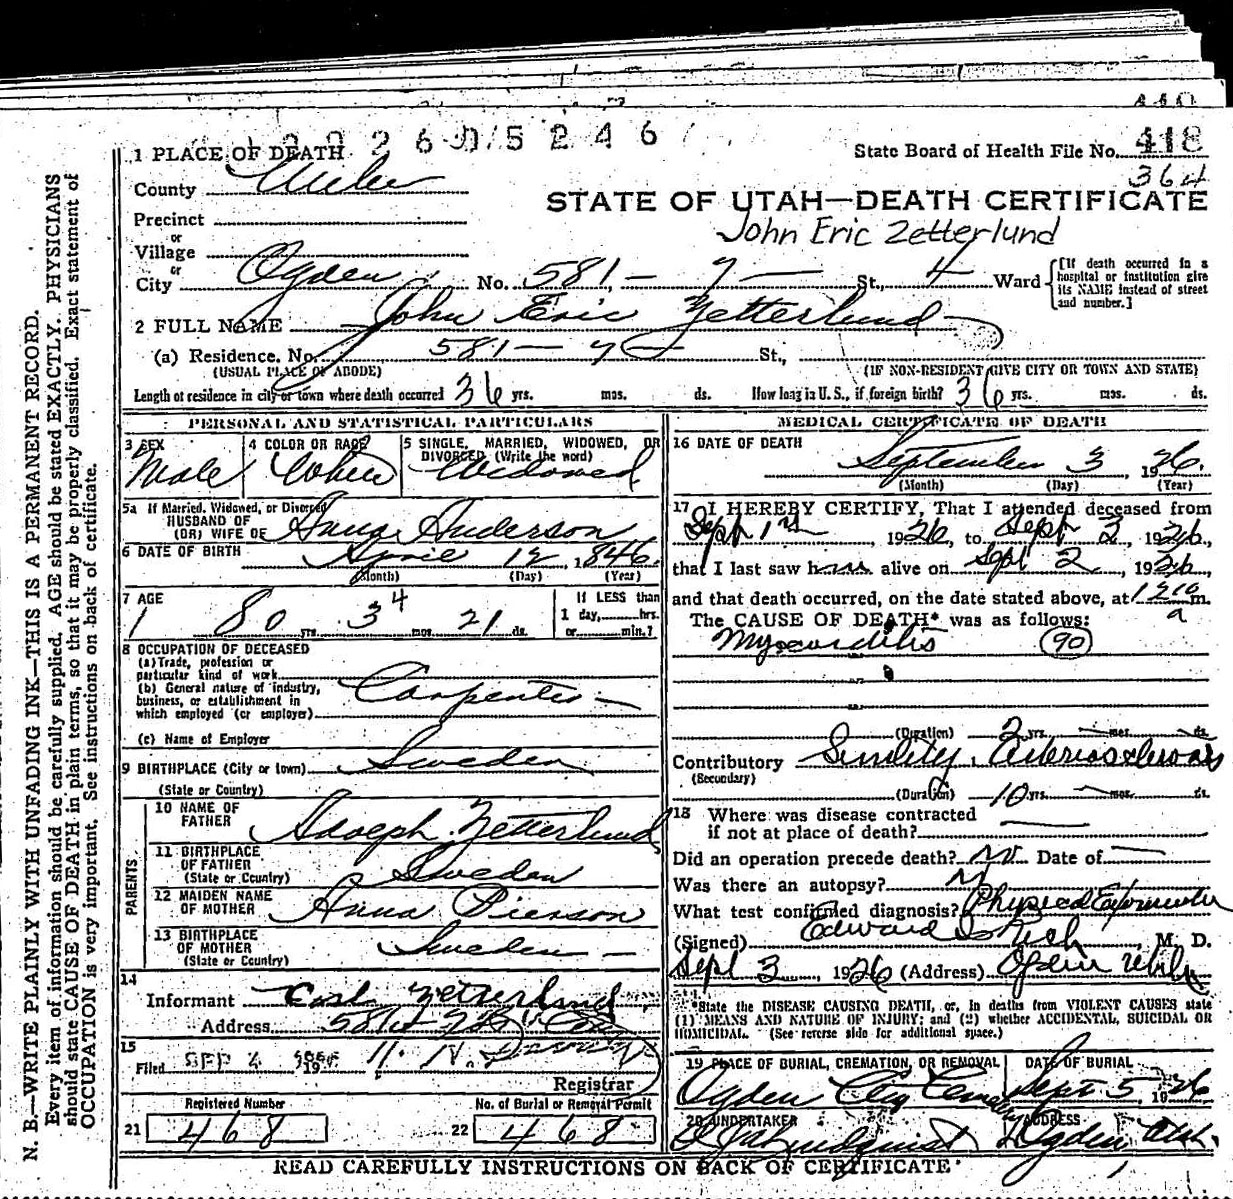 418
364
State Board of Health File No.
1 PLACE OF DEATH
County Weber
STATE OF UTAH—DEATH CERTIFICATE
John Eric Zetterlund
Precinct
or
Village
or
City Ogden No. 581 — 7 — St., 4 Ward
[If death occurred in a hospital or institution give its NAME instead of street and number.]
2 FULL NAME John Eric Zetterlund
(a) Residence. No. 581 — 7 — St.,
(USUAL PLACE OF ABODE) (IF NON-RESIDENT GIVE CITY OR TOWN AND STATE)
Length of residence in city or town where death occurred 36 yrs. mos. ds. How long in U.S., if foreign birth? 36 yrs. mos. ds.
PERSONAL AND STATISTICAL PARTICULARS
3 SEX
Male
4 COLOR OR RACE
White
5 SINGLE, MARRIED, WIDOWED, OR DIVORCED (Write the word)
Widowed
5a If Married, Widowed, or Divorced
HUSBAND OF
(OR) WIFE OF Anna Anderson
6 DATE OF BIRTH April 12, 1846
(Month) (Day) (Year)
7 AGE
80 yrs. 4 mos. 21 ds.
If LESS than
1 day, hrs.
or min.?
8 OCCUPATION OF DECEASED
(a) Trade, profession or
particular kind of work
(b) General nature of industry,
business, or establishment in
which employed (or employer)
Carpenter
(c) Name of Employer
9 BIRTHPLACE (City or town) Sweden
(State or Country)
PARENTS
10 NAME OF
FATHER Adolph Zetterlund
11 BIRTHPLACE
OF FATHER
(State or Country) Sweden
12 MAIDEN NAME
OF MOTHER Anna Pierson
13 BIRTHPLACE
OF MOTHER
(State or Country) Sweden
14
Informant Carl Zetterlund
Address 581
15
Filed SEP 4
Registrar
Registered Number
21 468
No. of Burial or Removal Permit
22 468
MEDICAL CERTIFICATE OF DEATH
16 DATE OF DEATH
September 3, 1926.
(Month) (Day) (Year)
17 I HEREBY CERTIFY, That I attended deceased from
Sept 1st 1926, to Sept 3, 1926,
that I last saw him alive on Sept 2, 1926,
and that death occurred, on the date stated above, at m.
a
The CAUSE OF DEATH* was as follows:
Myocarditis 90
(Duration) 2 yrs. mos. ds.
Contributory Senility, Arteriosclerosis
(Secondary)
(Duration) 10 yrs. mos. ds.
18 Where was disease contracted
if not at place of death?
Did an operation precede death? No Date of
Was there an autopsy? N
What test confirmed diagnosis? Physical
(Signed) Edward M. D.
Sept 3, 1926 (Address) Ogden Utah
*State the DISEASE CAUSING DEATH, or, in deaths from VIOLENT CAUSES state
(1) MEANS AND NATURE OF INJURY; and (2) whether ACCIDENTAL, SUICIDAL OR
HOMICIDAL. (See reverse side for additional space.)
19 PLACE OF BURIAL, CREMATION, OR REMOVAL
Ogden City Cemetery
DATE OF BURIAL
Sept 5, 1926
20 UNDERTAKER
Lindquist
ADDRESS
Ogden Utah.
READ CAREFULLY INSTRUCTIONS ON BACK OF CERTIFICATE
N. B.—WRITE PLAINLY WITH UNFADING INK—THIS IS A PERMANENT RECORD.
Every item of information should be carefully supplied. AGE should be stated EXACTLY. PHYSICIANS
should state CAUSE OF DEATH in plain terms, so that it may be properly classified. Exact statement of
OCCUPATION is very important. See instructions on back of certificate.